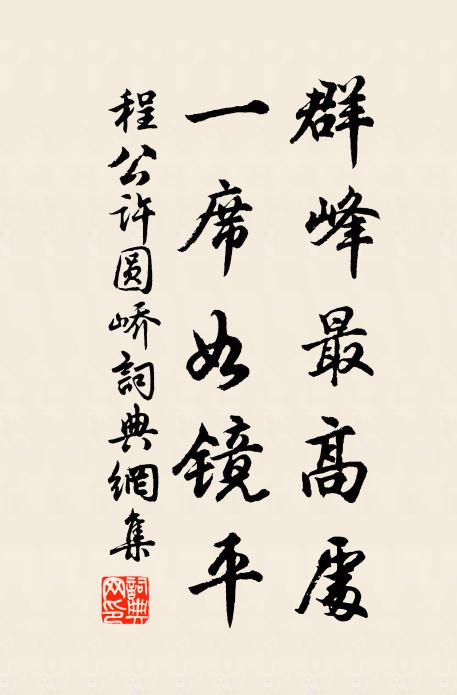 群峰最高處
一席如鏡平
程公许圆峤詞典網集
詞典网印